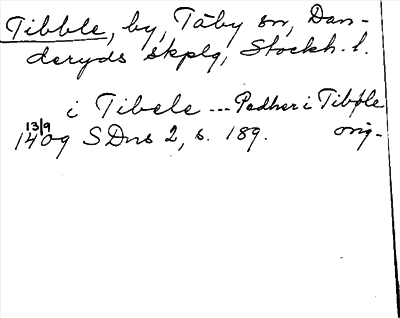 Tibble, by, Täby sn, Dan-
deryds skplg, Stockh. l.
i Tibele ... Pedher i Tibple
13/9
1409 SDns 2, s. 189. orig.